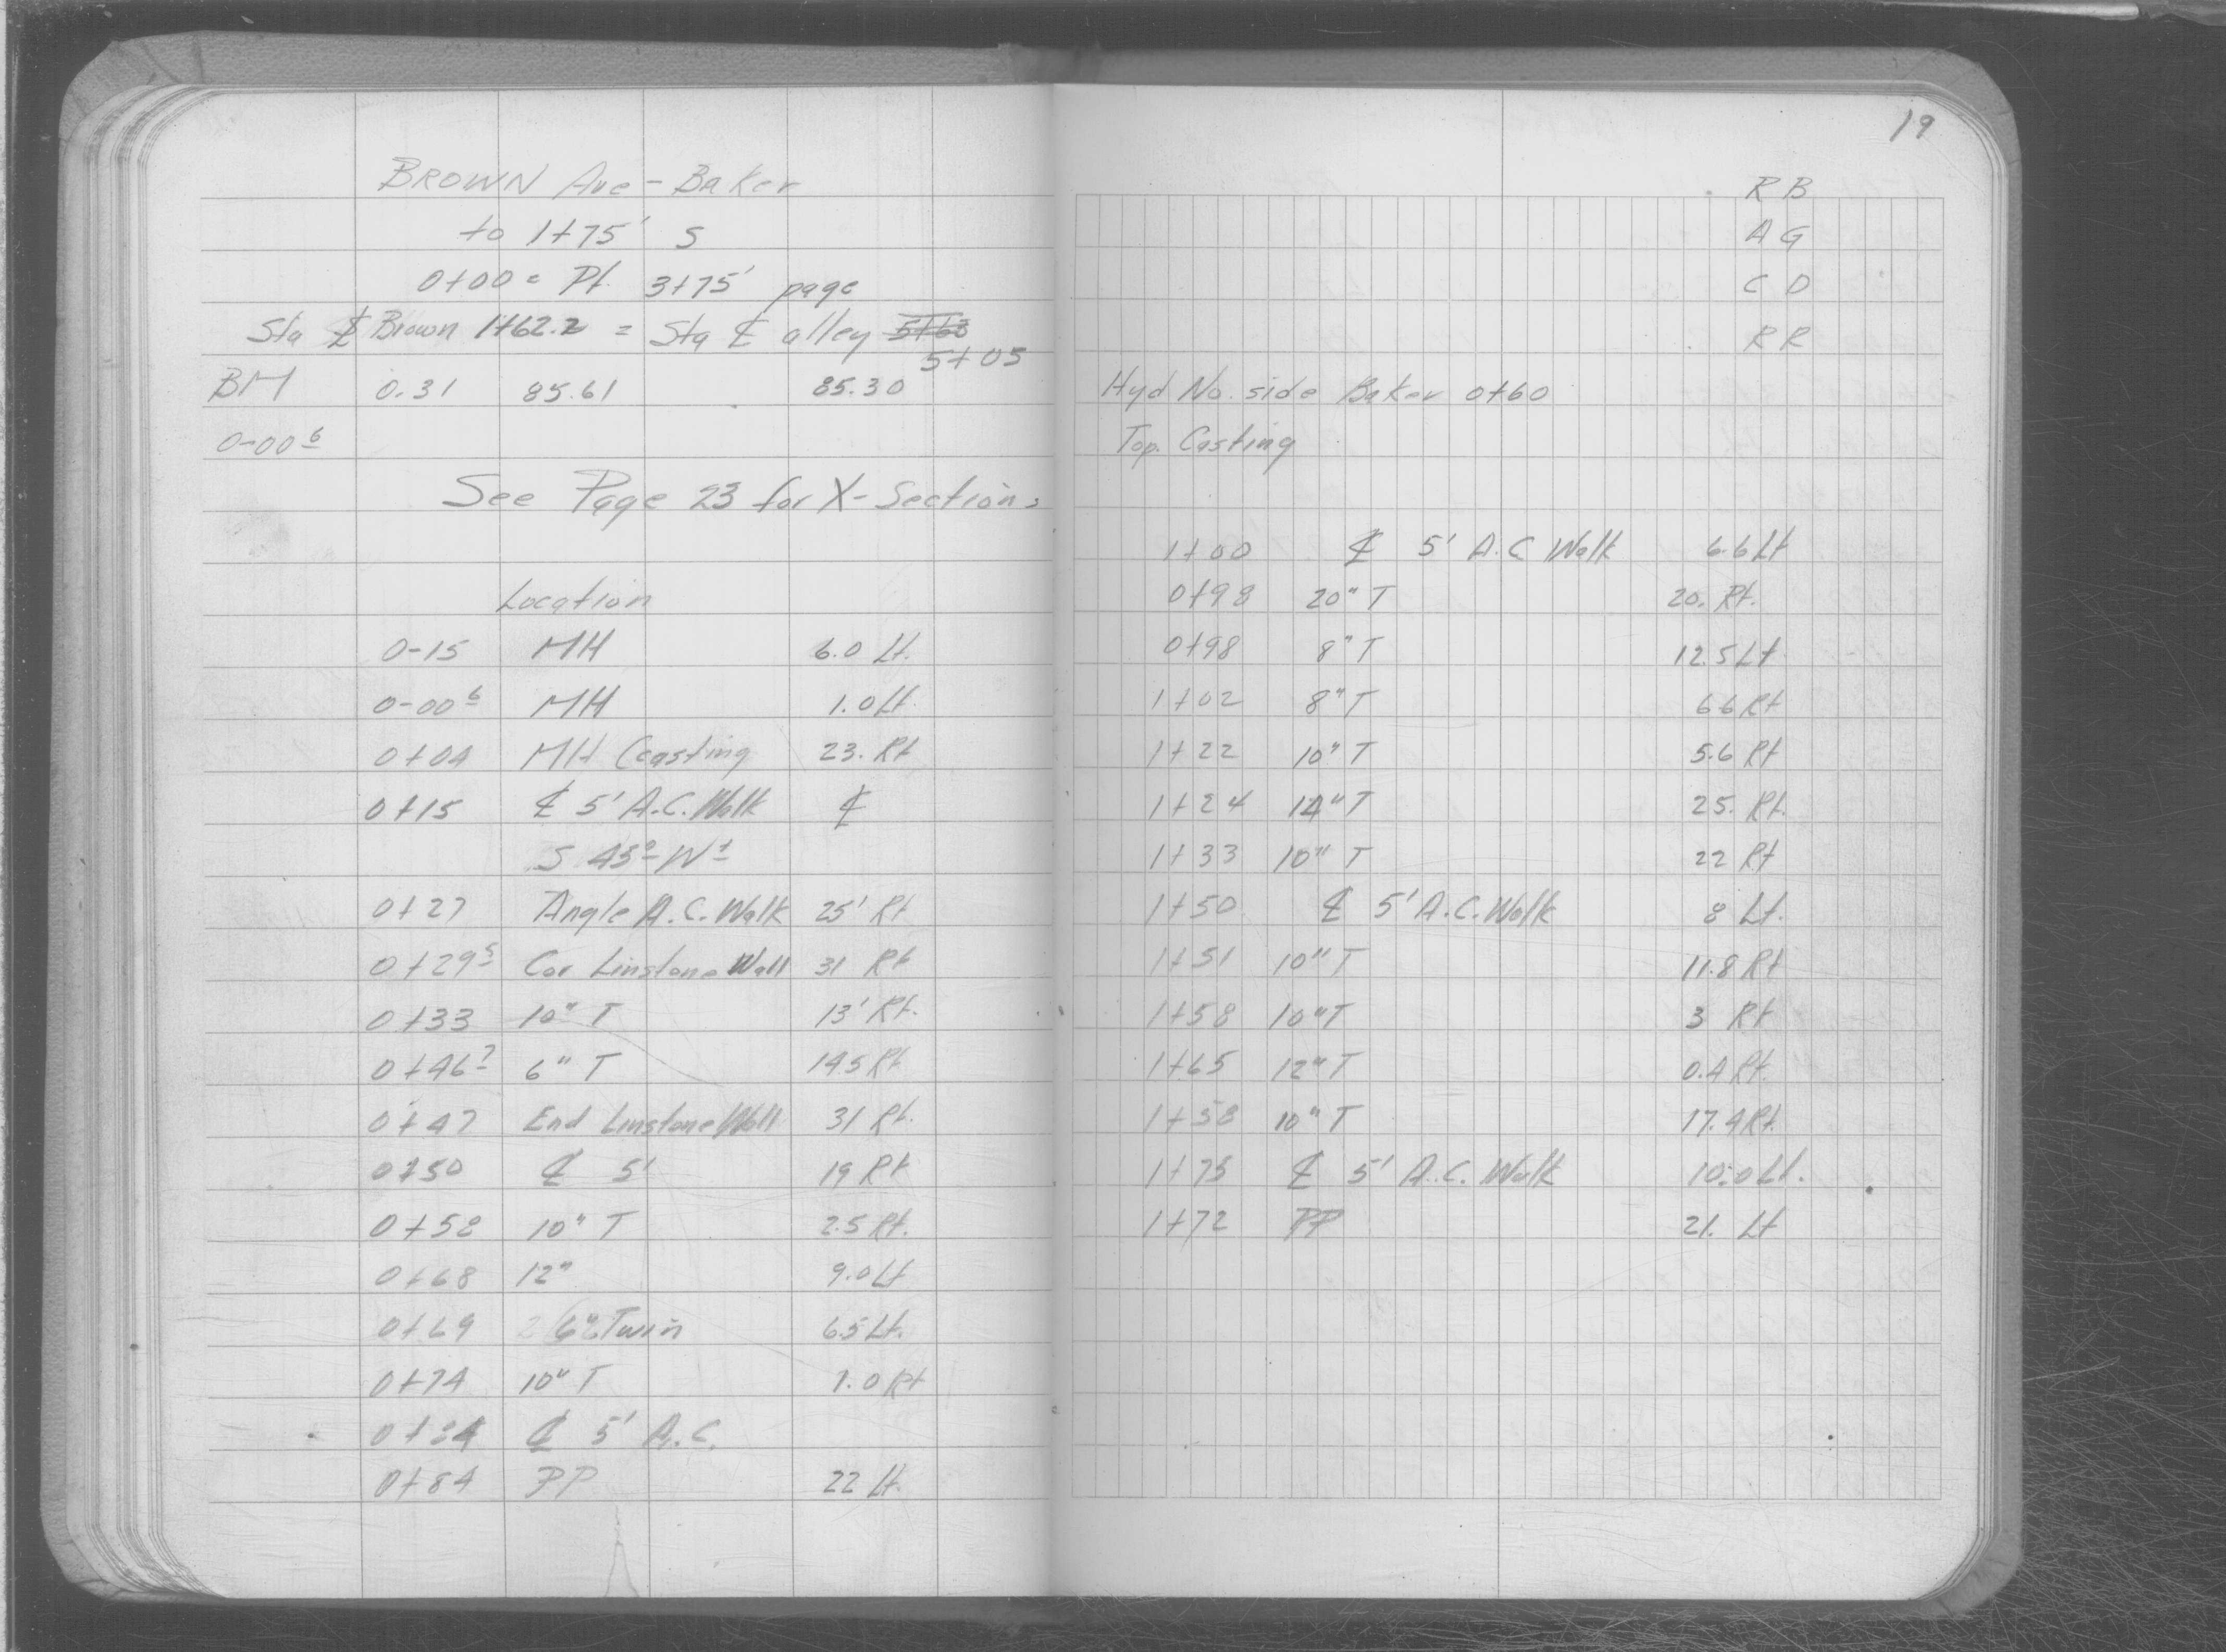 BROWN Ave - Baker
to 1+75' S
0+00 = Pt. 3+75' page
Sta ℄ Brown 1+62.2 = Sta ℄ alley 5+63
5+05
BM 0.31 85.61 85.30
0-00 6
See Page 23 for X-Sections
Location
0-15 MH 6.0 Lt.
0-00 6 MH 1.0 Lt.
0+04 MH Casting 23. Rt
0+15 ℄ 5' A.C. Walk ℄
S 43° W
0+27 Angle A.C. Walk 25' Rt
0+29 5 Cor Linstone Wall 31 Rt
0+33 10" T 13' Rt.
0+46 7 6" T 14.5 Rt
0+47 End Linstone Wall 31 Rt.
0+50 ℄ 5' 19 Rt
0+58 10" T 2.5 Rt.
0+68 12" 9.0 Lt
0+69 6" Twin 6.5 Lt.
0+74 10" T 7.0 Rt
℄ 5' A.C.
0+84 PP 22 Lt.
19
RB
AG
CD
RR
Hyd No. side Baker 0+60
Top. Casting
1+00 ℄ 5' A.C Walk 6.6 Lt
0+98 20" T 20. Rt.
0+98 8" T 12.5 Lt.
1+02 8" T 6.6 Rt
1+22 10" T 5.6 Rt
1+24 14" T 25. Rt.
1+33 10" T 22 Rt
1+50 ℄ 5' A.C. Walk 8 Lt.
1+51 10" T 11.8 Rt
1+58 10" T 3 Rt
1+65 12" T 0.4 Rt.
1+58 10" T 17.4 Rt.
1+75 ℄ 5' A.C. Walk 10.0 Lt.
1+72 PP 21. Lt